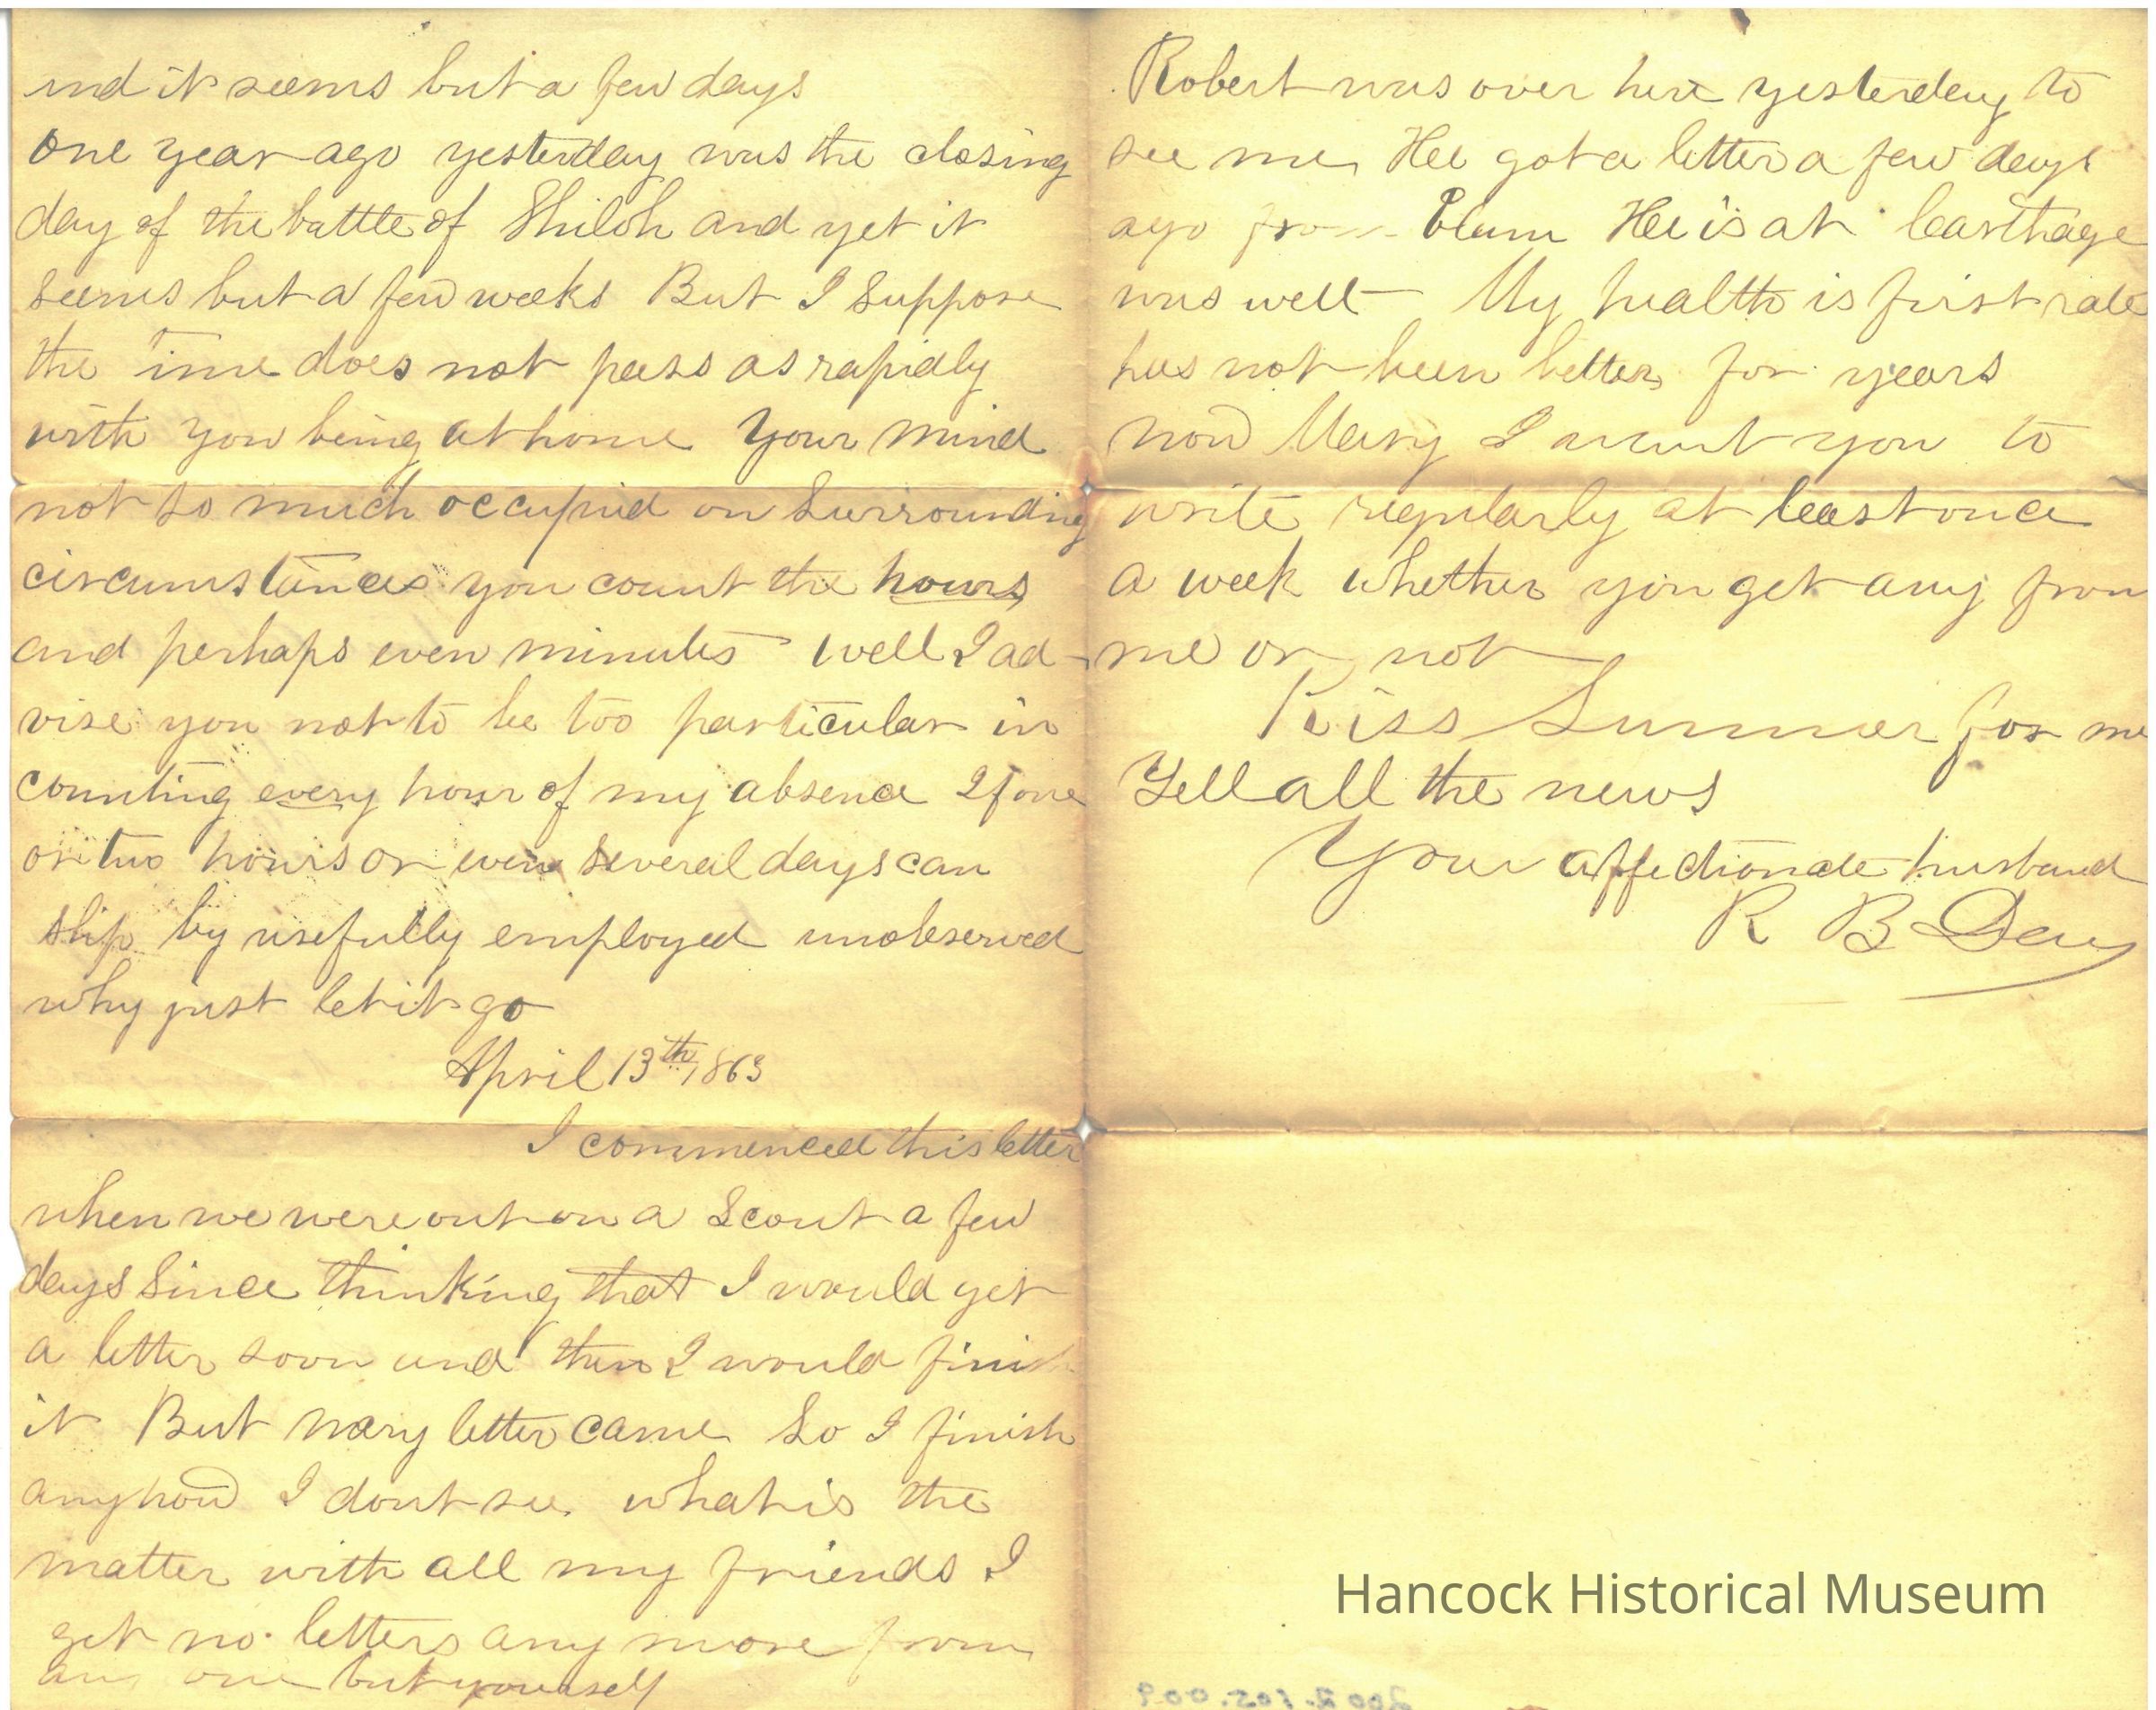 and it seems but a few days
One year ago yesterday was the closing
day of the battle of Shiloh and yet it
seems but a few weeks But I suppose
the time does not pass as rapidly
with you being at home Your mind
not so much occupied on surrounding
circumstances you count the hours
and perhaps even minutes Well I ad-
vise you not to be too particular in
counting every hour of my absence If one
or two hours or even several days can
slip by usefully employed unobserved
why just let it go
April 13th, 1863
I commenced this letter
when we were out on a Scout a few
days since thinking that I would get
a letter soon and then I would finish
it But nary letter came So I finish
anyhow I dont see what is the
matter with all my friends I
get no letters any more from
any one but yourself
Robert was over here yesterday to
see me Hee got a letter a few days
ago from Hee is at Carthage
was well My health is first rate
has not been better for years
now Mary I want you to
write regularly at least once
a week whether you get any from
me or not
Kiss Sumner for me
Tell all the news
Your affectionate husband
R B Day
Hancock Historical Museum
2002.105.009